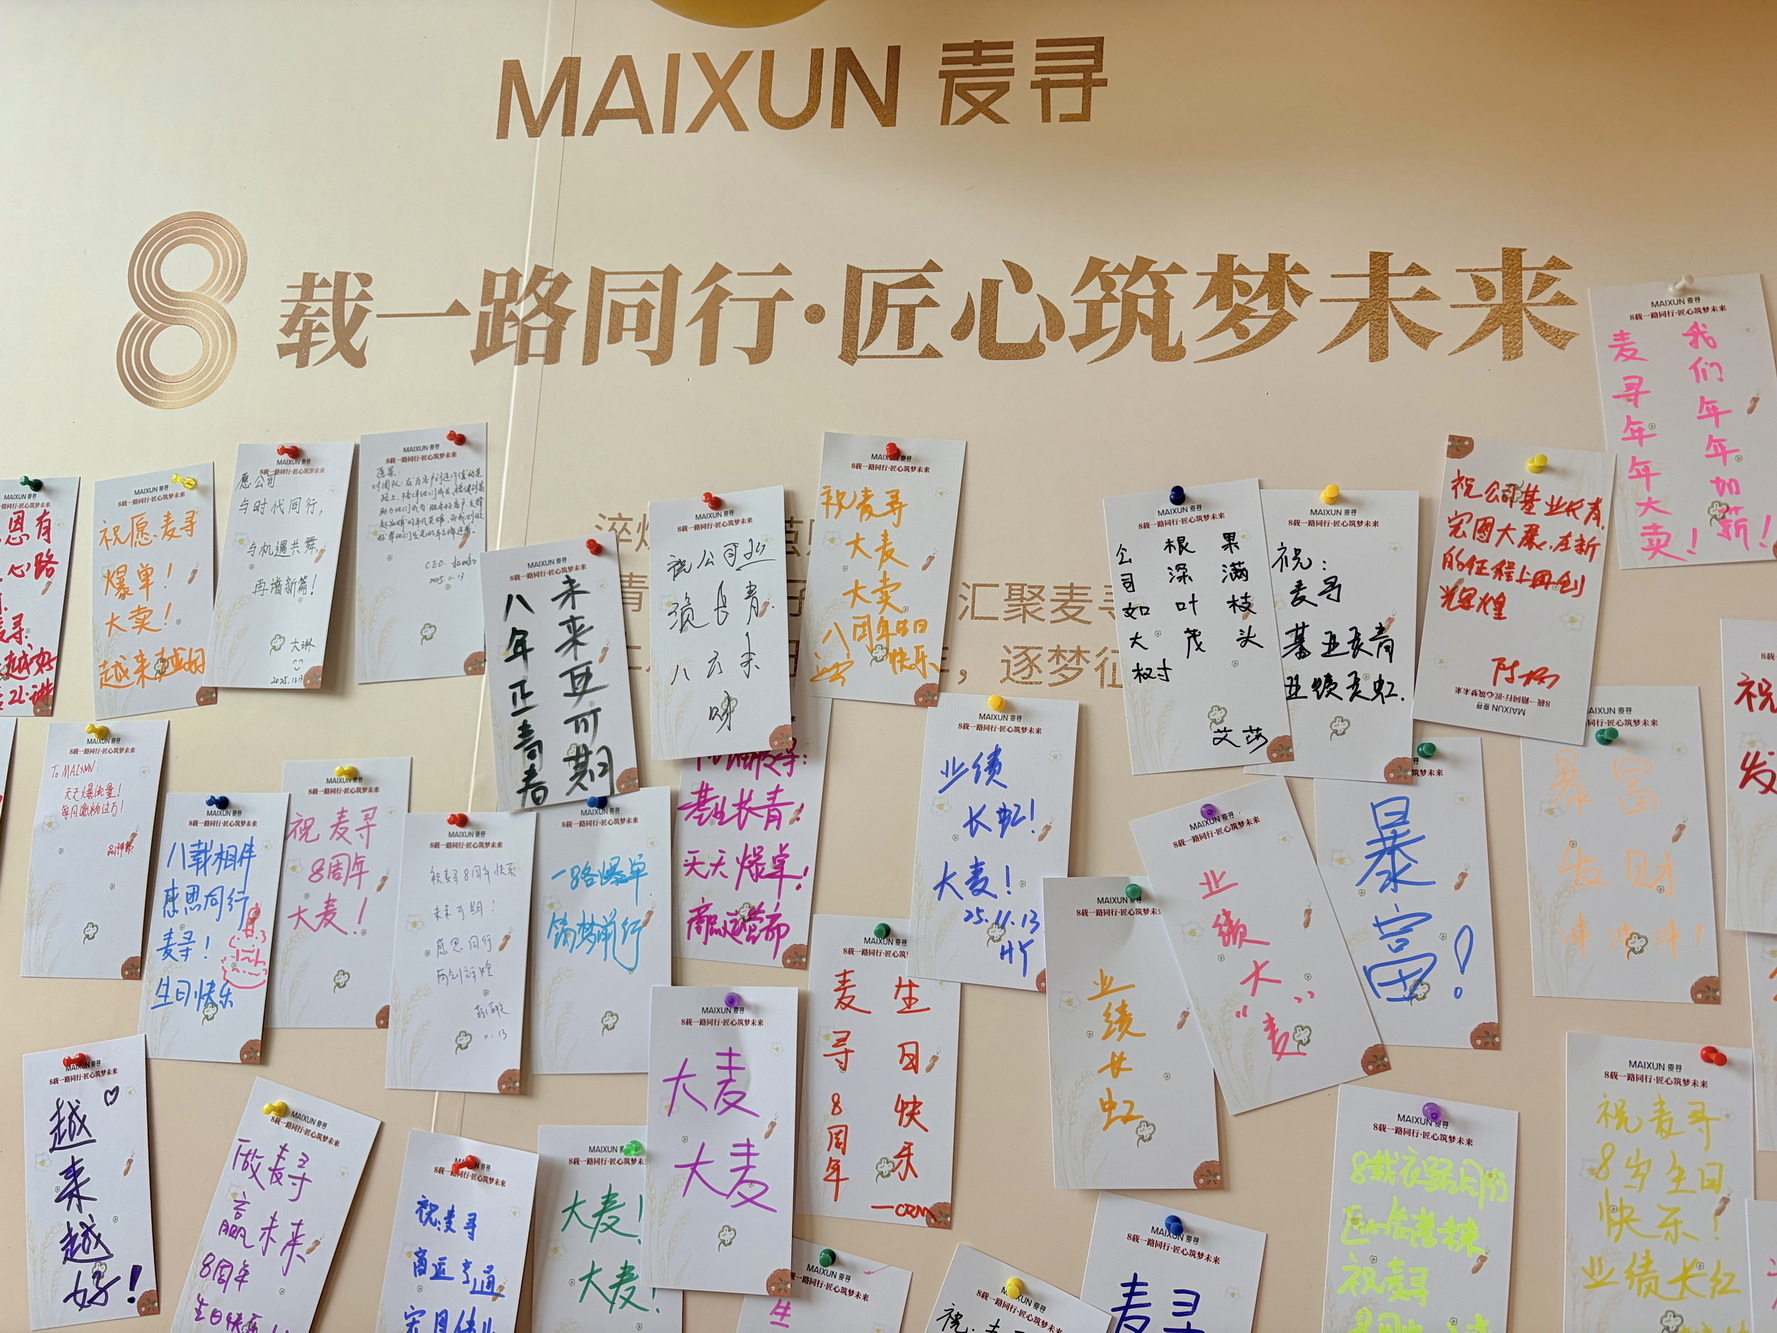 MAIXUN 麦寻
8载一路同行·匠心筑梦未来
汇聚麦寻
，逐梦征
MAIXUN 麦寻
8载一路同行·匠心筑梦未来
我们年年加薪！
麦寻年年大卖！
恩有
心路
越好
MAIXUN 麦寻
8载一路同行·匠心筑梦未来
祝愿麦寻
爆单！
大卖！
越来越好
MAIXUN 麦寻
8载一路同行·匠心筑梦未来
愿公司
与时代同行，
与机遇共舞，
再谱新篇！
大琳
MAIXUN 麦寻
8载一路同行·匠心筑梦未来
CEO.
2025.11.13
8载一路同行·匠心筑梦未来
未来更可期
八年正青春
MAIXUN 麦寻
8载一路同行·匠心筑梦未来
祝公司业
绩长青.
八方来
MAIXUN 麦寻
8载一路同行·匠心筑梦未来
祝麦寻
大麦
大卖
八周年生日
快乐
MAIXUN 麦寻
8载一路同行·匠心筑梦未来
公司如大树
根深叶茂
果满枝头
艾莎
MAIXUN 麦寻
8载一路同行·匠心筑梦未来
祝：
麦寻
基业长青
业绩长虹.
祝公司基业长青，
宏图大展，在新
的征程上再创
辉煌
8载一路同行·匠心筑梦未来
MAIXUN 麦寻
祝
发
MAIXUN 麦寻
8载一路同行·匠心筑梦未来
To MAIXUN：
天天爆单！
MAIXUN 麦寻
8载一路同行·匠心筑梦未来
八载相伴
感恩同行
麦寻！
生日快乐
MAIXUN 麦寻
8载一路同行·匠心筑梦未来
祝麦寻
8周年
大麦！
MAIXUN 麦寻
8载一路同行·匠心筑梦未来
祝麦寻8周年快乐
未来可期！
感恩同行
再创辉煌
11.13
MAIXUN 麦寻
8载一路同行·匠心筑梦未来
一路爆单
筑梦前行
基业长青！
天天爆单！
商品运营部
MAIXUN 麦寻
8载一路同行·匠心筑梦未来
业绩
长虹！
大麦！
25.11.13
MAIXUN 麦寻
8载一路同行·匠心筑梦未来
业绩长虹
MAIXUN 麦寻
8载一路同行·匠心筑梦未来
业绩大麦
暴富！
MAIXUN 麦寻
8载一路同行·匠心筑梦未来
暴富
发财
冲冲冲！
MAIXUN 麦寻
8载一路同行·匠心筑梦未来
越来越好！
MAIXUN 麦寻
8载一路同行·匠心筑梦未来
做麦寻
赢未来
8周年
生日快乐！
MAIXUN 麦寻
8载一路同行·匠心筑梦未来
祝麦寻
商运亨通
MAIXUN 麦寻
8载一路同行·匠心筑梦未来
大麦！
大麦！
MAIXUN 麦寻
8载一路同行·匠心筑梦未来
大麦
大麦
MAIXUN 麦寻
8载一路同行·匠心筑梦未来
麦寻8周年
生日快乐
—CRM
MAIXUN 麦寻
8载一路同行·匠心筑梦未来
生
MAIXUN 麦寻
8载一路同行·匠心筑梦未来
祝：
MAIXUN 麦寻
8载一路同行·匠心筑梦未来
麦寻
MAIXUN 麦寻
8载一路同行·匠心筑梦未来
8载一路同行
匠心筑梦未来
祝麦寻
MAIXUN 麦寻
8载一路同行·匠心筑梦未来
祝麦寻
8岁生日
快乐！
业绩长红